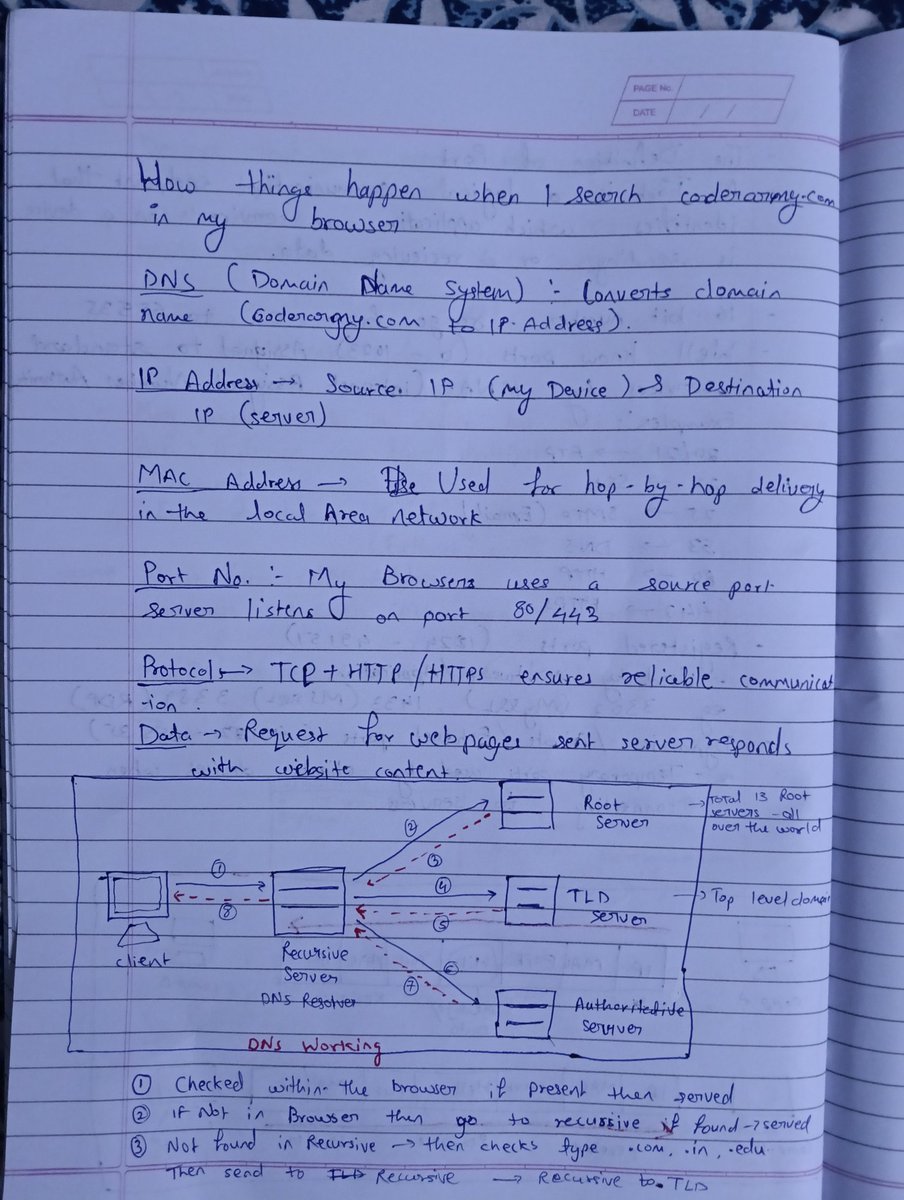 PAGE No.
DATE / /
How things happen when I search coderarmy.com
in my browser
DNS (Domain Name System) :- Converts domain
name (Coderargny.com to IP Address).
IP Address → Source. IP (my Device) → Destination
IP (server)
MAC Address → Used for hop-by-hop delivery
in the local Area network
Port No. :- My Browsers uses a source port
server listens on port 80/443
Protocol → TCP + HTTP/HTTPs ensures reliable communicat
-ion.
Data → Request for webpages sent server responds
with website content.
① ② ③ ④ ⑤ ⑥ ⑦ ⑧
Root
Server
→ Total 13 Root
servers - all
over the world
TLD
Server
→ Top level domain
client
Recursive
Server
DNS Resolver
Authoritative
Serever
DNS Working
① Checked within the browser if present then served
② IF Not in Browser then go to recussive if found → served
③ Not found in Recursive → then checks type .com, .in, .edu
Then send to TLD Recursive → Recursive to TLD